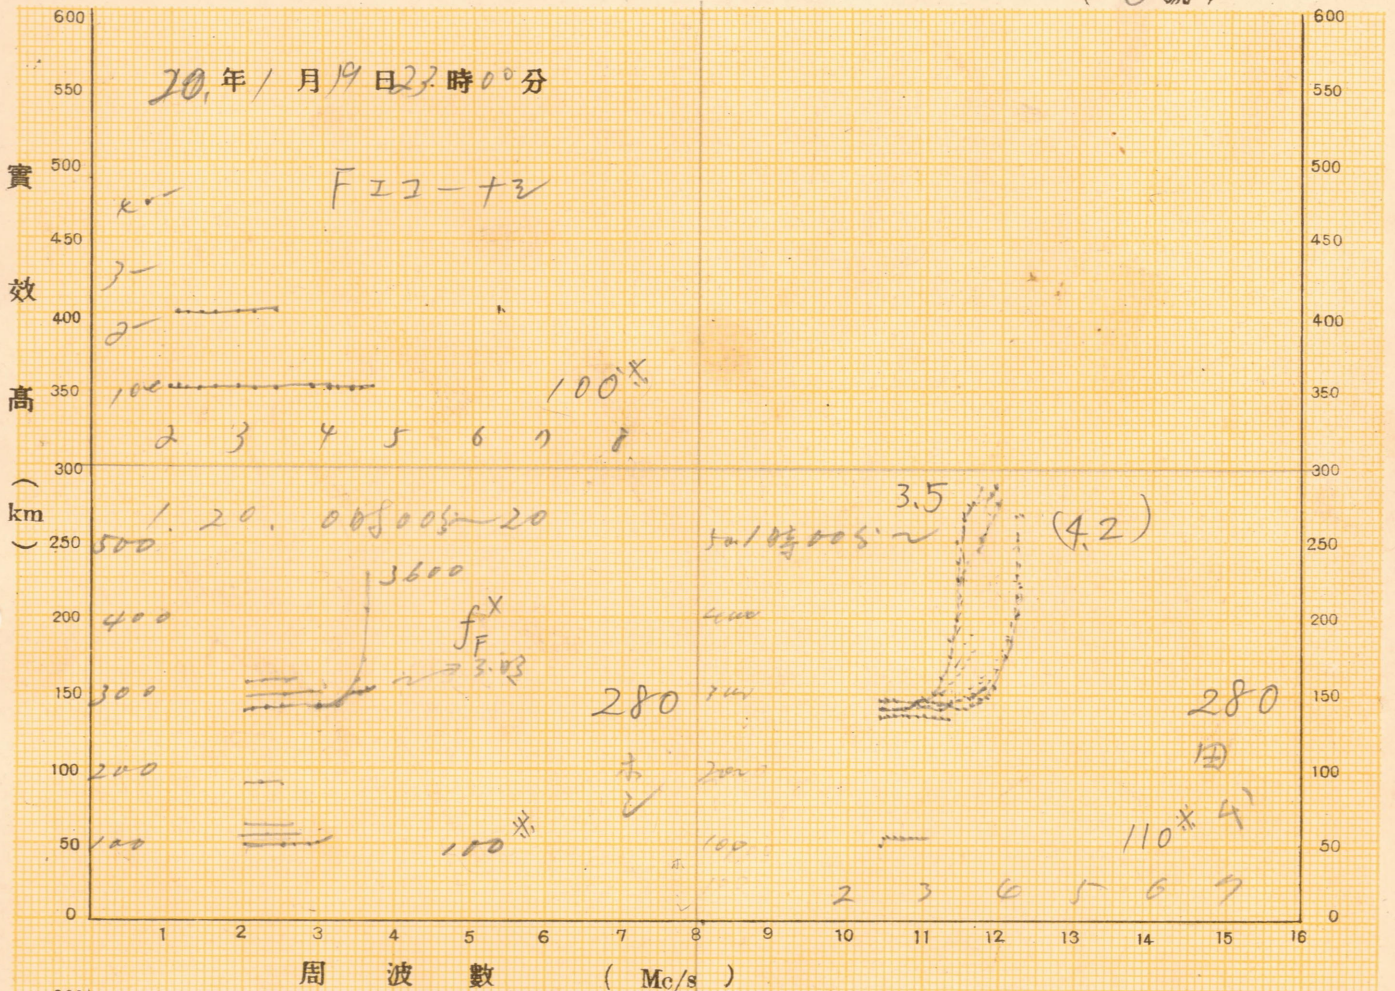 20.年1月19日23時00分
Fエコーナシ
實效高(km)
600
550
500
450
400
350
300
250
200
150
100
50
0
600
550
500
450
400
350
300
250
200
150
100
50
0
3-
2-
100
100※
2 3 4 5 6 7 8
1.20. 0時00分~20
500
400
300
200
100
3600
fFX
280
100※
1時00分~
3.5
(4.2)
280
田
110※
100
2 3 4 5 6 7
1 2 3 4 5 6 7 8 9 10 11 12 13 14 15 16
周波數 (Mc/s)